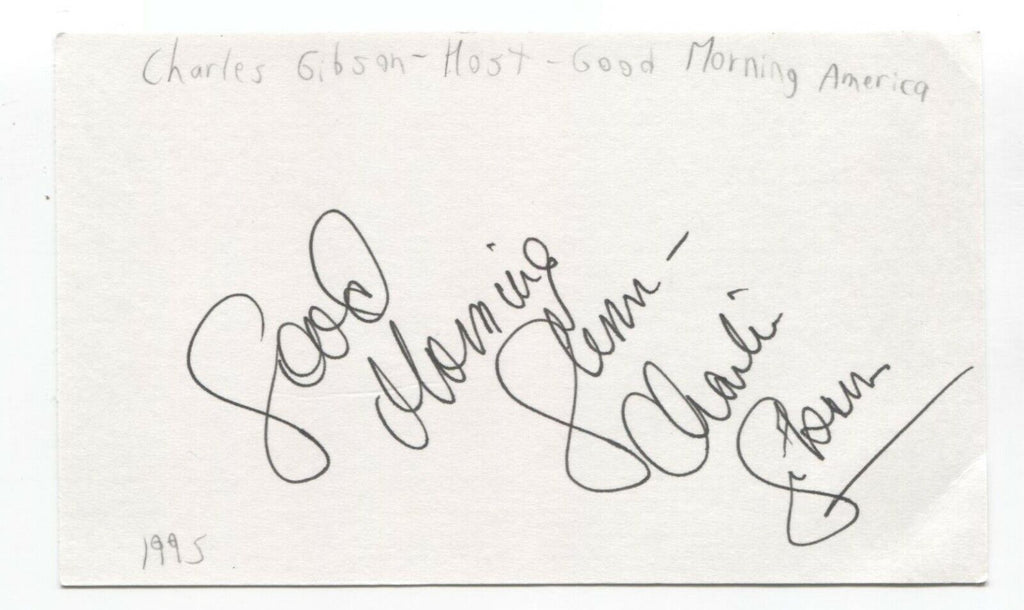 Charles Gibson - Host - Good Morning America
Good
Morning
Glenn -
Charlie
Gibson
1995